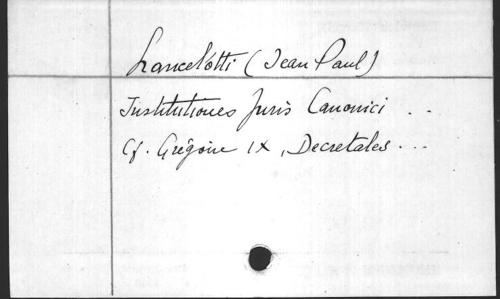 Lancelotti (Jean Paul)
Institutiones Juris Canonici . .
Cf. Grégoire IX, Decretales . . .